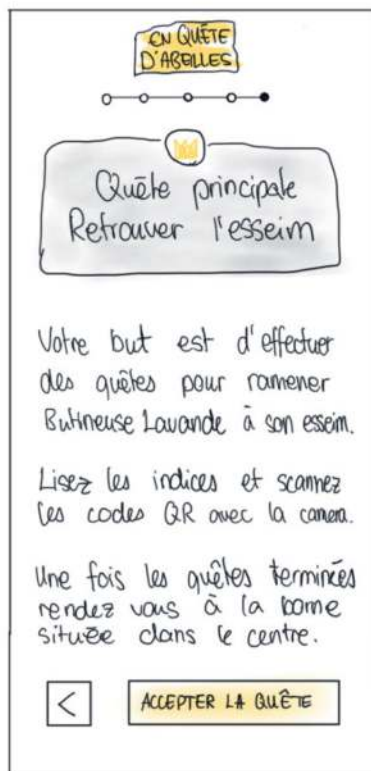 EN QUÊTE
D'ABEILLES
Quête principale
Retrouver l'esseim
Votre but est d'effectuer
des quêtes pour ramener
Butineuse Lavande à son esseim.
Lisez les indices et scannez
les codes QR avec la camera.
Une fois les quêtes terminées
rendez vous à la borne
située dans le centre.
<
ACCEPTER LA QUÊTE